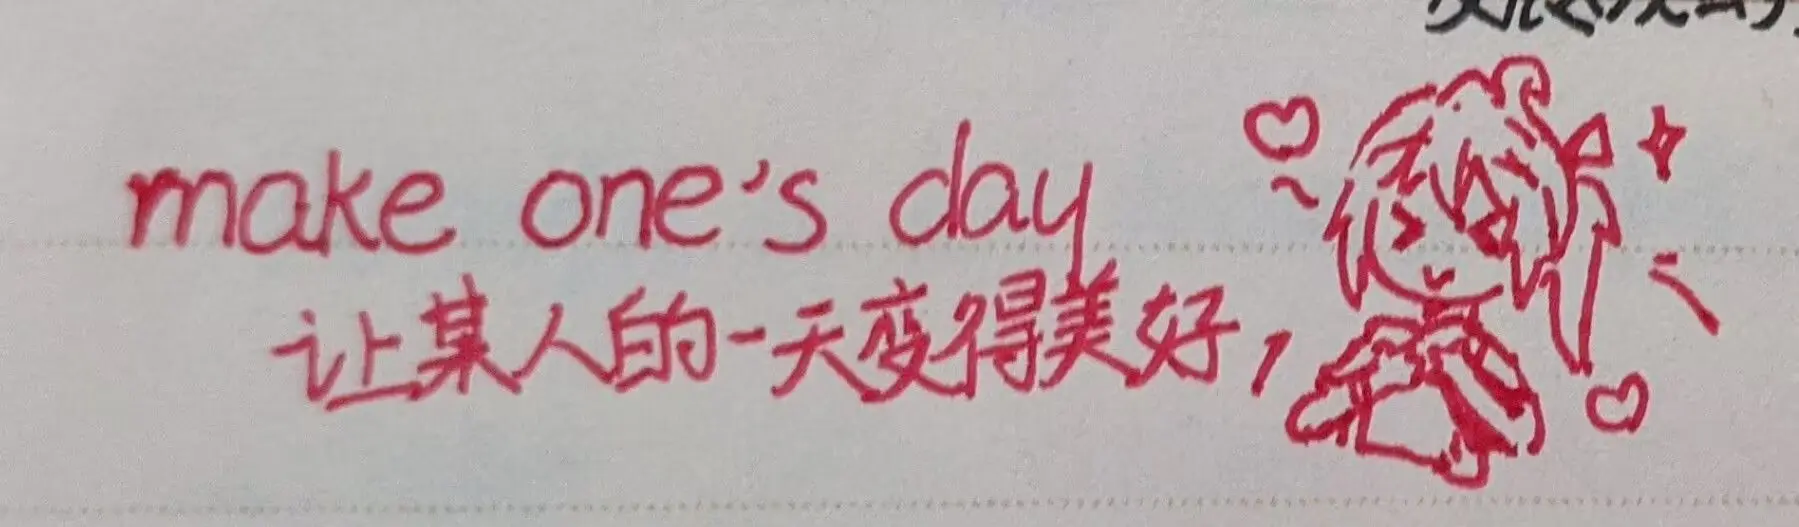 make one's day
让某人的一天变得美好,